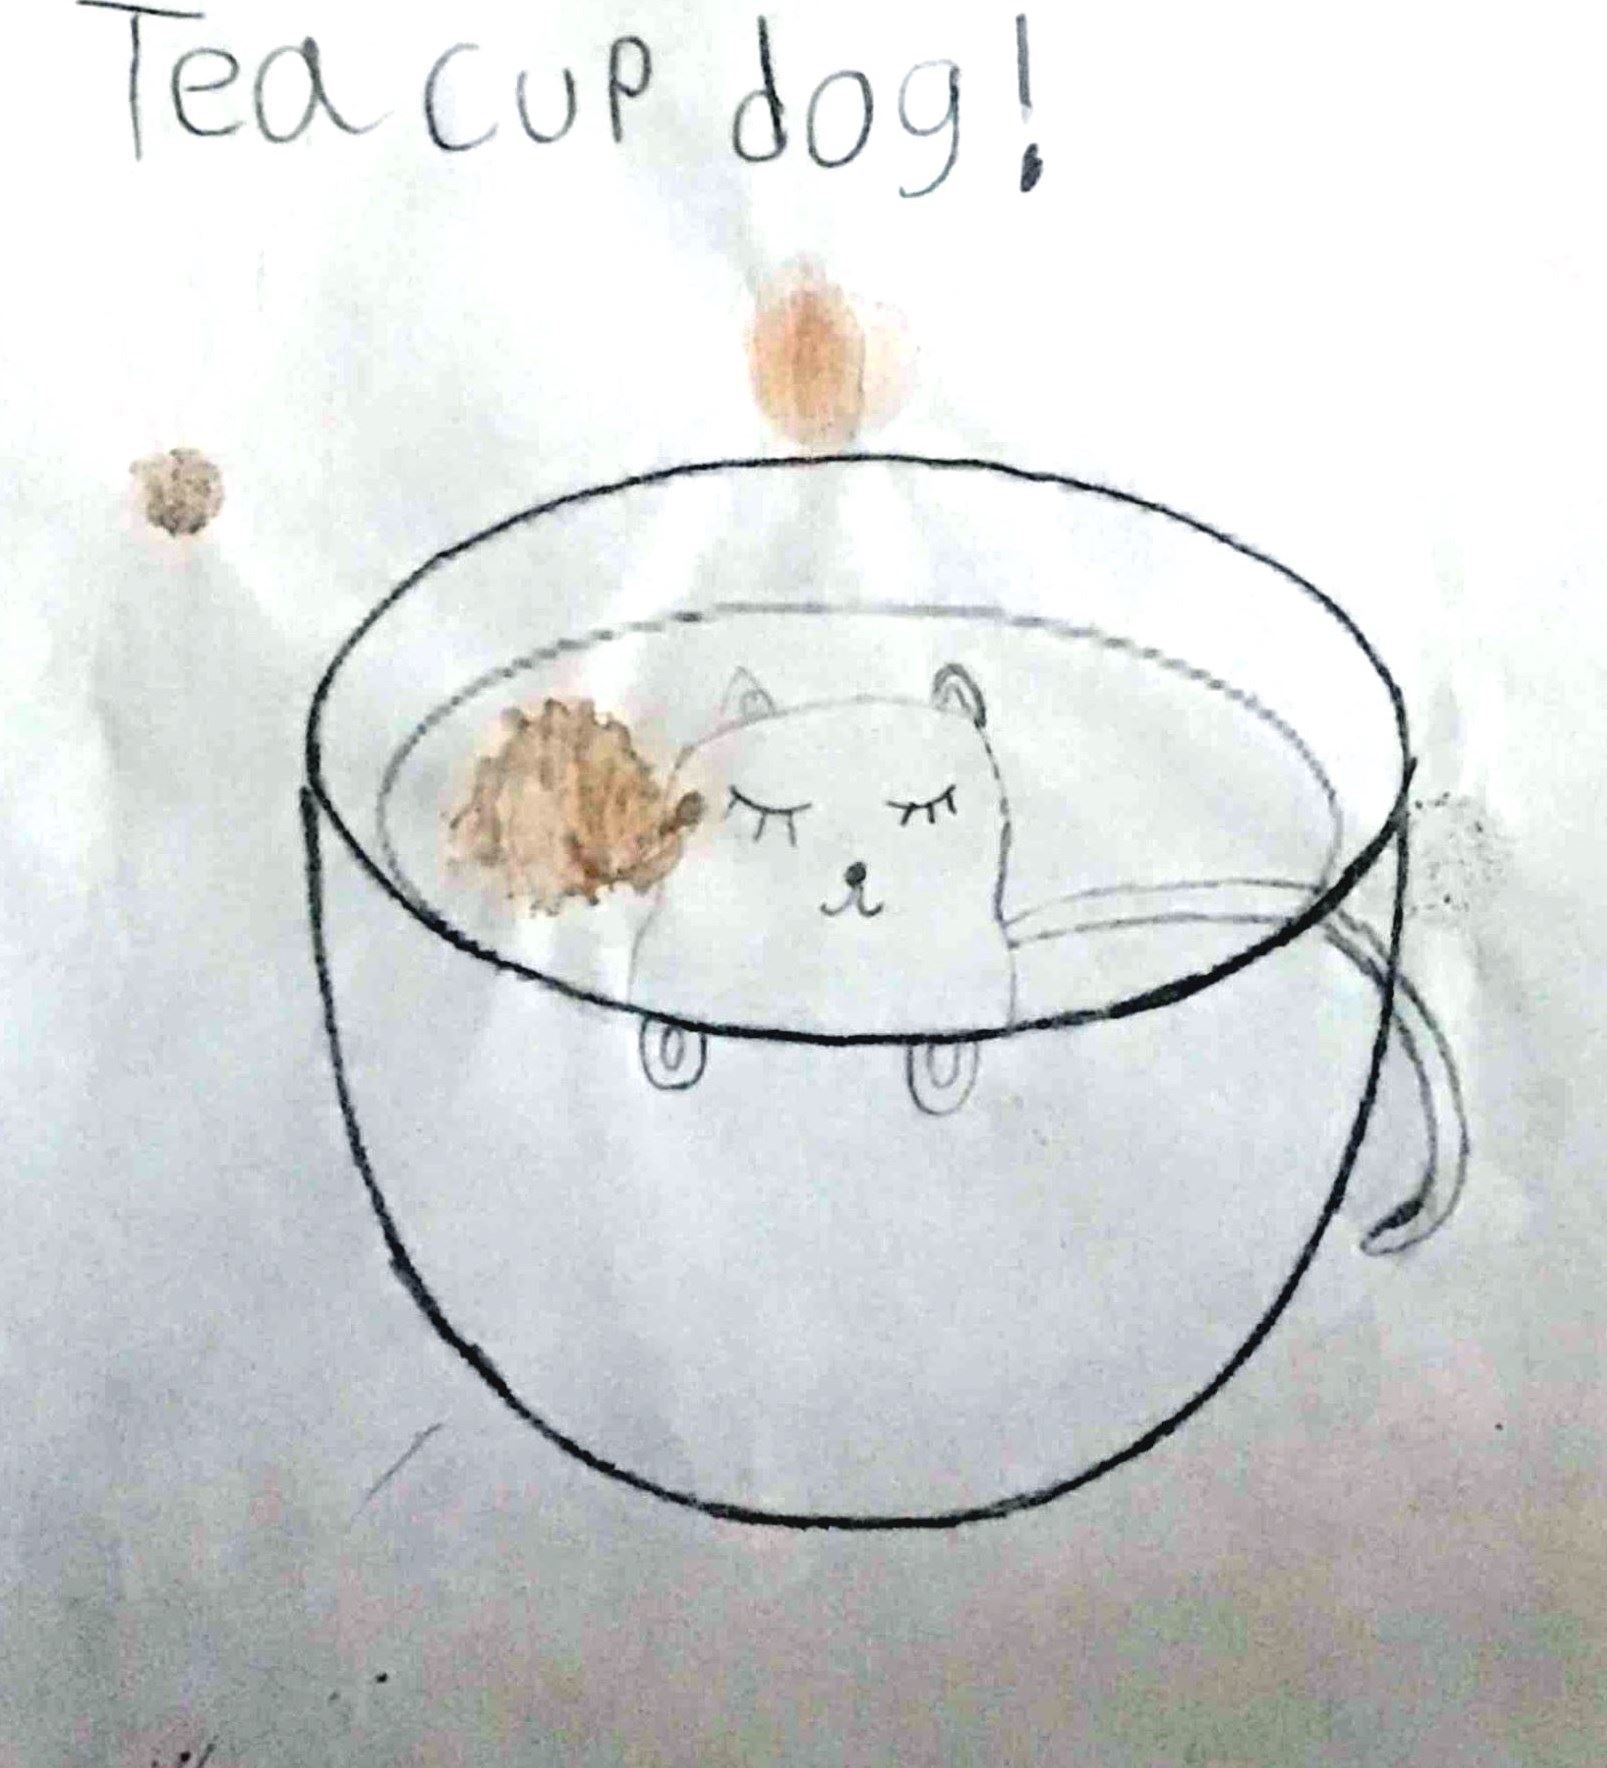 Tea cup dog!